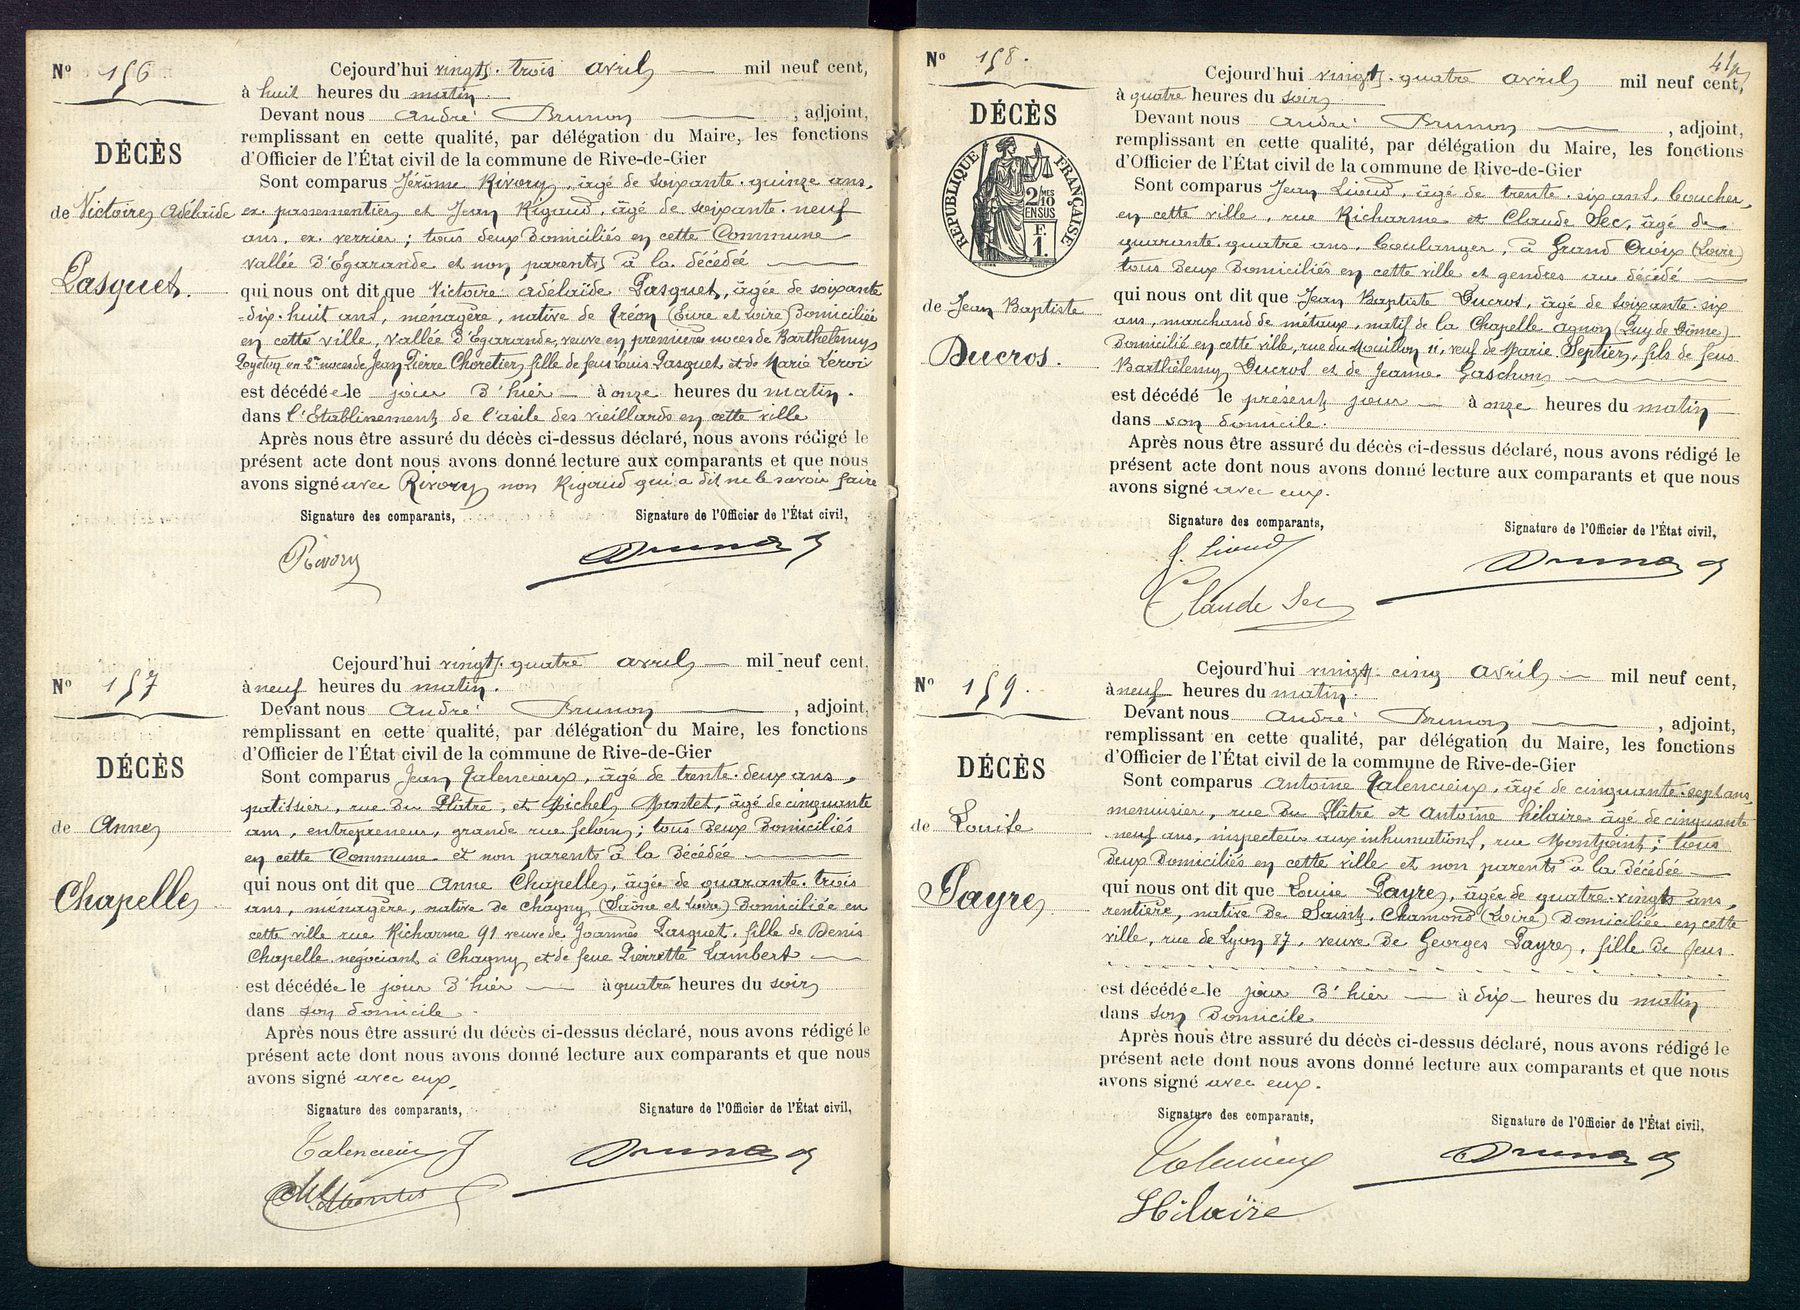 Nº 156
DÉCÈS
de Victoire Adélaïde
Pasquet.
Cejourd'hui vingt-trois avril — mil neuf cent,
à huit heures du matin.
Devant nous André Brunon — , adjoint,
remplissant en cette qualité, par délégation du Maire, les fonctions
d'Officier de l'État civil de la commune de Rive-de-Gier
Sont comparus Jérôme Rivory, âgé de soixante-quinze ans,
ex. passementier et Jean Rigaud, âgé de soixante-neuf
ans, ex. verrier; tous deux domiciliés en cette Commune
vallée d'Egarande et non parents à la décédée —
qui nous ont dit que Victoire Adélaïde Pasquet, âgée de soixante
-dix-huit ans, ménagère, native de (Eure et Loire) domiciliée
en cette ville, vallée d'Egarande, veuve en premières noces de Barthélemy
en 2es noces de Jean Pierre Choretier, fille de feus Louis Pasquet et de Marie Léroi
est décédée le jour d'hier — à onze heures du matin.
dans l'Etablissement de l'asile des vieillards en cette ville
Après nous être assuré du décès ci-dessus déclaré, nous avons rédigé le
présent acte dont nous avons donné lecture aux comparants et que nous
avons signé avec Rivory non Rigaud qui a dit ne le savoir faire
Signature des comparants, Signature de l'Officier de l'État civil,
Rivory Brunon
Nº 157
DÉCÈS
de Anne
Chapelle
Cejourd'hui vingt-quatre avril — mil neuf cent,
à neuf heures du matin.
Devant nous André Brunon — , adjoint,
remplissant en cette qualité, par délégation du Maire, les fonctions
d'Officier de l'État civil de la commune de Rive-de-Gier
Sont comparus Jean Valencieux, âgé de trente-deux ans,
patissier, rue du Plâtre, et Michel Montet, âgé de cinquante
ans, entrepreneur, grande rue feloin; tous deux domiciliés
en cette Commune et non parents à la décédée —
qui nous ont dit que Anne Chapelle, âgée de quarante-trois
ans, ménagère, native de Chagny (Saône et Loire) domiciliée en
cette ville rue Richarme 91 veuve de Joannès Pasquet, fille de Denis
Chapelle négociant à Chagny et de feue Pierrette Lambert —
est décédée le jour d'hier — à quatre heures du soir
dans son domicile.
Après nous être assuré du décès ci-dessus déclaré, nous avons rédigé le
présent acte dont nous avons donné lecture aux comparants et que nous
avons signé avec eux.
Signature des comparants, Signature de l'Officier de l'État civil,
Valencieux J Brunon
Montet
Nº 158.
DÉCÈS
RÉPUBLIQUE FRANÇAISE
2/10MES
EN SUS
F.
1.
de Jean Baptiste
Ducros.
Cejourd'hui vingt-quatre avril mil neuf cent,
à quatre heures du soir
Devant nous André Brunon — , adjoint,
remplissant en cette qualité, par délégation du Maire, les fonctions
d'Officier de l'État civil de la commune de Rive-de-Gier
Sont comparus Jean Lioud, âgé de trente-six ans, boucher,
en cette ville, rue Richarme et Claude Sec, âgé de
quarante-quatre ans, boulanger, à Grand Croix (Loire)
tous deux domiciliés en cette ville et gendres au décédé —
qui nous ont dit que Jean Baptiste Ducros, âgé de soixante-six
ans, marchand de métaux, natif de la Chapelle Agnon (Puy de Dôme)
domicilié en cette ville, rue du Mouillon 11, veuf de Marie Septier, fils de feus
Barthélemy Ducros et de Jeanne Gaschon —
est décédé le présent jour — à onze heures du matin —
dans son domicile.
Après nous être assuré du décès ci-dessus déclaré, nous avons rédigé le
présent acte dont nous avons donné lecture aux comparants et que nous
avons signé avec eux.
Signature des comparants, Signature de l'Officier de l'État civil,
J. Lioud Brunon
Claude Sec
Nº 159.
DÉCÈS
de Louise
Payre
Cejourd'hui vingt-cinq avril — mil neuf cent,
à neuf heures du matin.
Devant nous André Brunon — , adjoint,
remplissant en cette qualité, par délégation du Maire, les fonctions
d'Officier de l'État civil de la commune de Rive-de-Gier
Sont comparus Antoine Valencieux, âgé de cinquante-sept ans,
menuisier, rue du Plâtre et Antoine hilaire âgé de cinquante
neuf ans, inspecteur aux inhumations, rue Montjoint; tous
deux domiciliés en cette ville et non parents à la décédée —
qui nous ont dit que Louise Payre, âgée de quatre-vingts ans,
rentière, native de Saint-Chamond (Loire) domiciliée en cette
ville, rue de Lyon 87, veuve de Georges Payre, fille de feus
est décédée le jour d'hier — à dix — heures du matin
dans son domicile
Après nous être assuré du décès ci-dessus déclaré, nous avons rédigé le
présent acte dont nous avons donné lecture aux comparants et que nous
avons signé avec eux.
Signature des comparants, Signature de l'Officier de l'État civil,
Valencieux Brunon
Hilaire